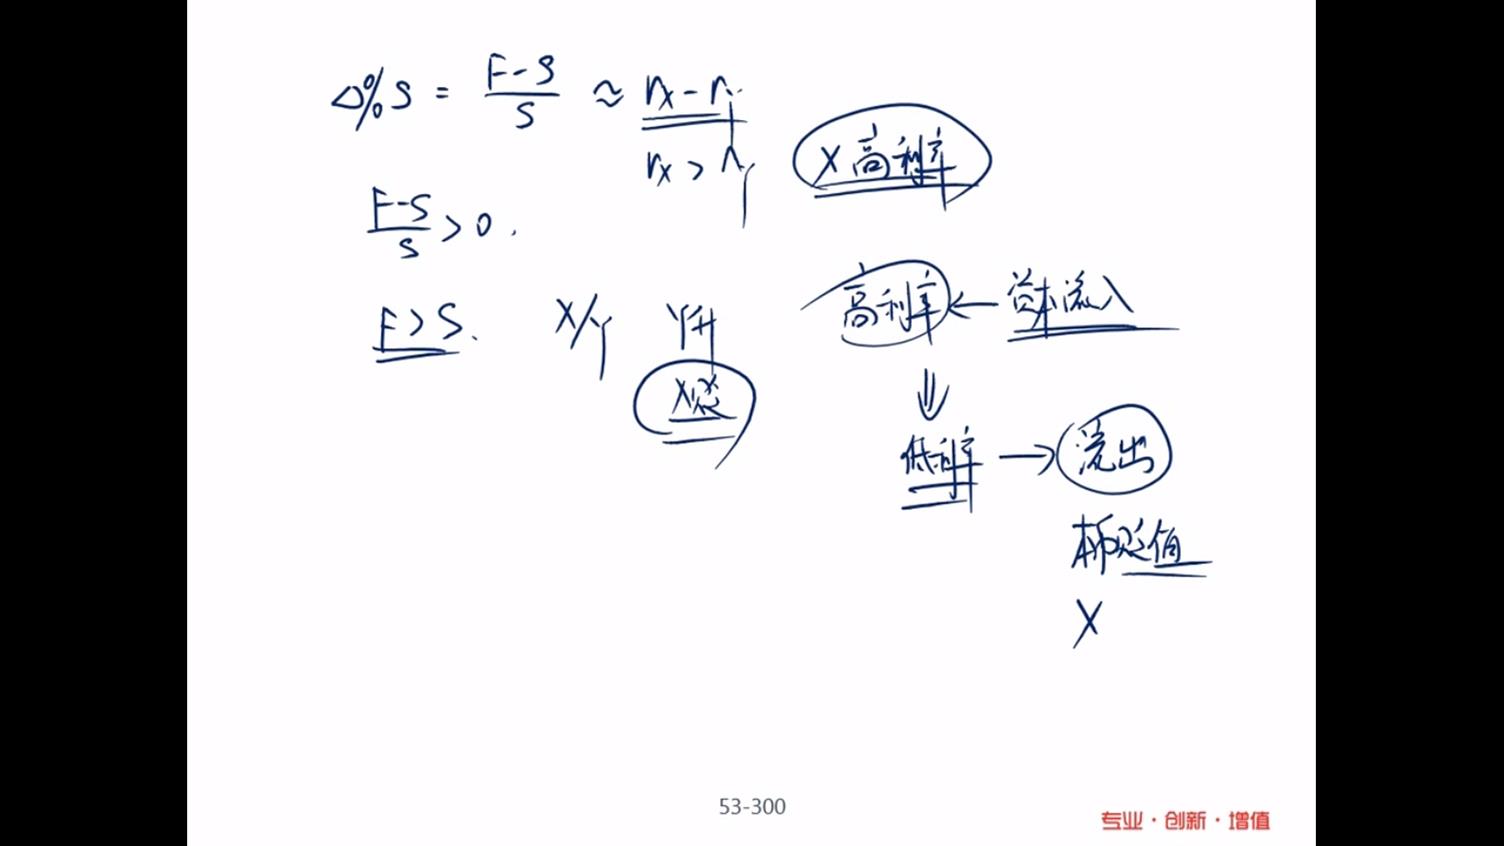 Δ%S = (F-S)/S ≈ rx - ry
rx > ry
X高利率
(F-S)/S > 0.
F > S.
X/Y
Y升
X贬
高利率 ← 资本流入
⇓
低利率 → 流出
本币贬值
X
53-300
专业·创新·增值